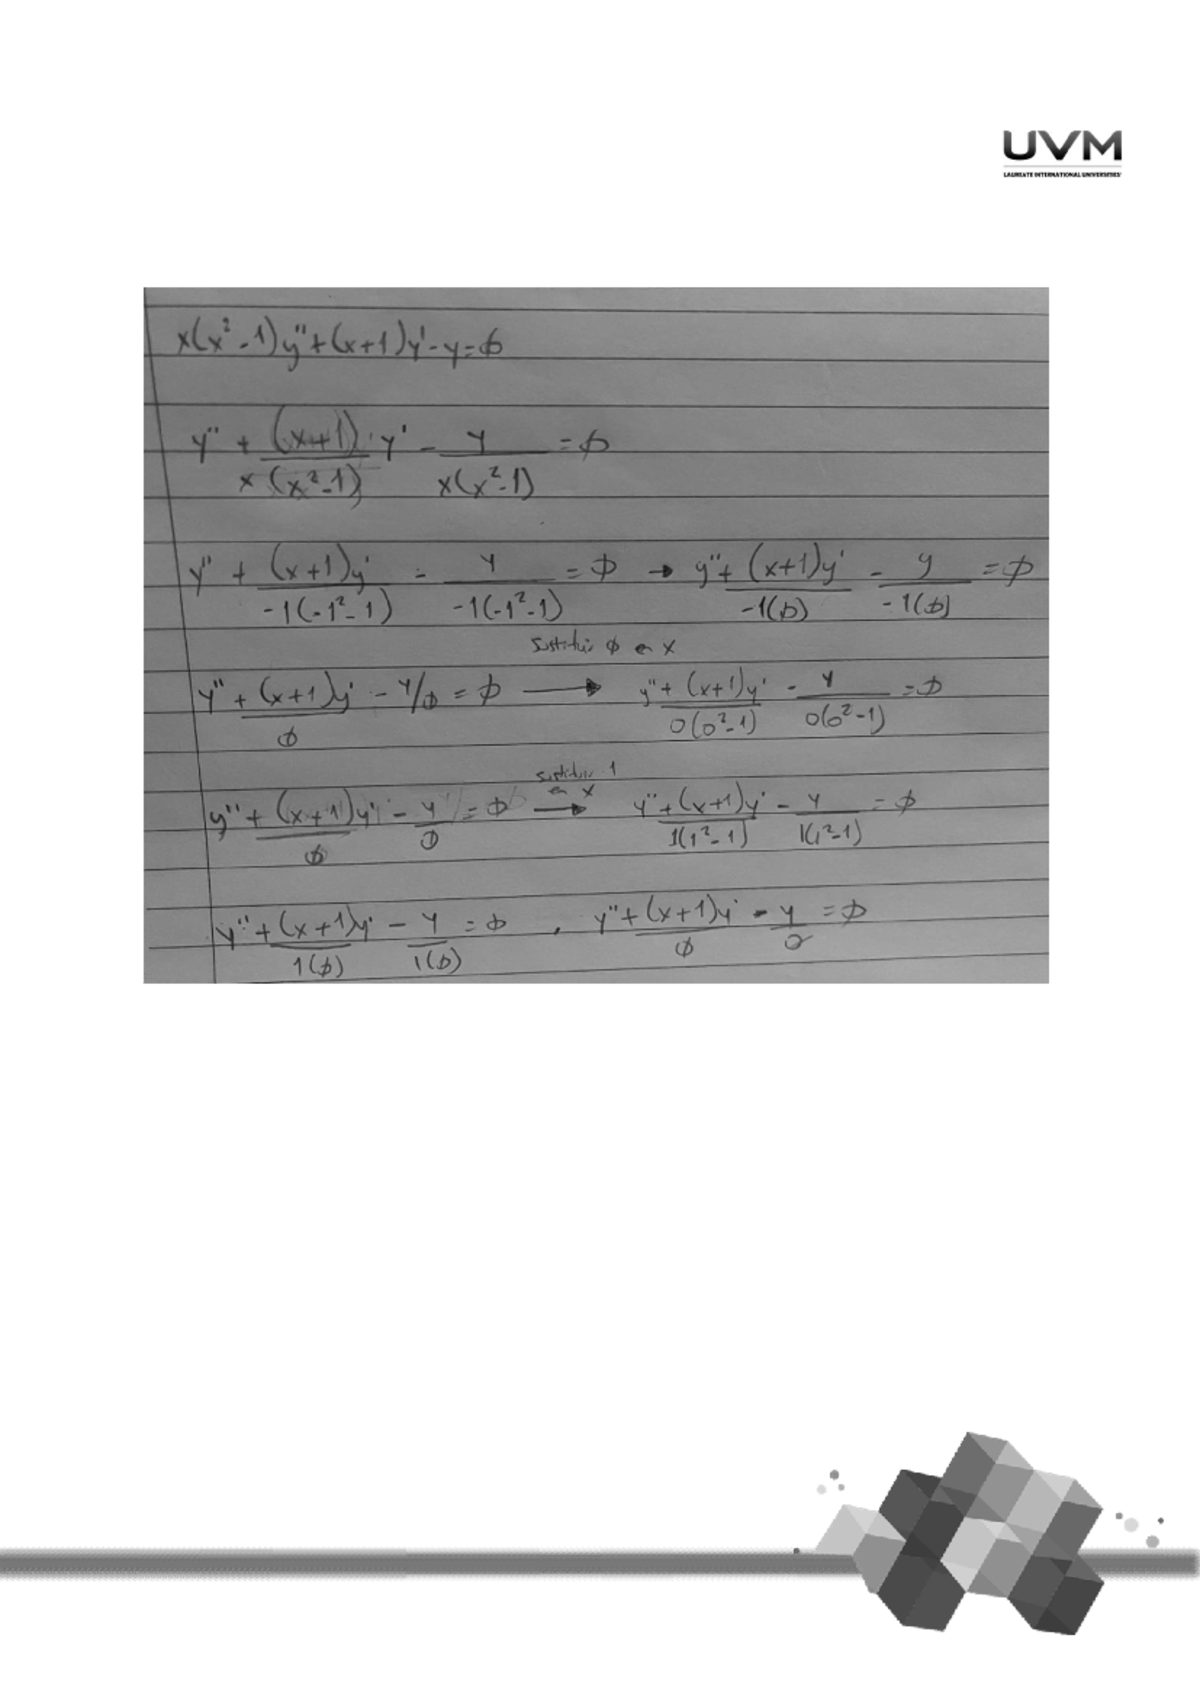 UVM
LAUREATE INTERNATIONAL UNIVERSITIES
x(x²-1)y''+(x+1)y'-y=ϕ
y'' + (x+1)/x(x²-1) · y' - y/x(x²-1) = ϕ
y'' + (x+1)y'/-1(-1²-1) - y/-1(-1²-1) = ϕ → y''+ (x+1)y'/-1(ϕ) - y/-1(ϕ) = ϕ
Sustituir ϕ en x
y'' + (x+1)y'/ϕ - y/ϕ = ϕ → y''+ (x+1)y'/0(0²-1) - y/0(0²-1) = ϕ
sustituir 1
en x
y'' + (x+1)y'/ϕ - y/ϕ = ϕ → y''+(x+1)y'/1(1²-1) - y/1(1²-1) = ϕ
y''+(x+1)y'/1(ϕ) - y/1(ϕ) = ϕ . y''+(x+1)y'/ϕ - y/0 = ϕ